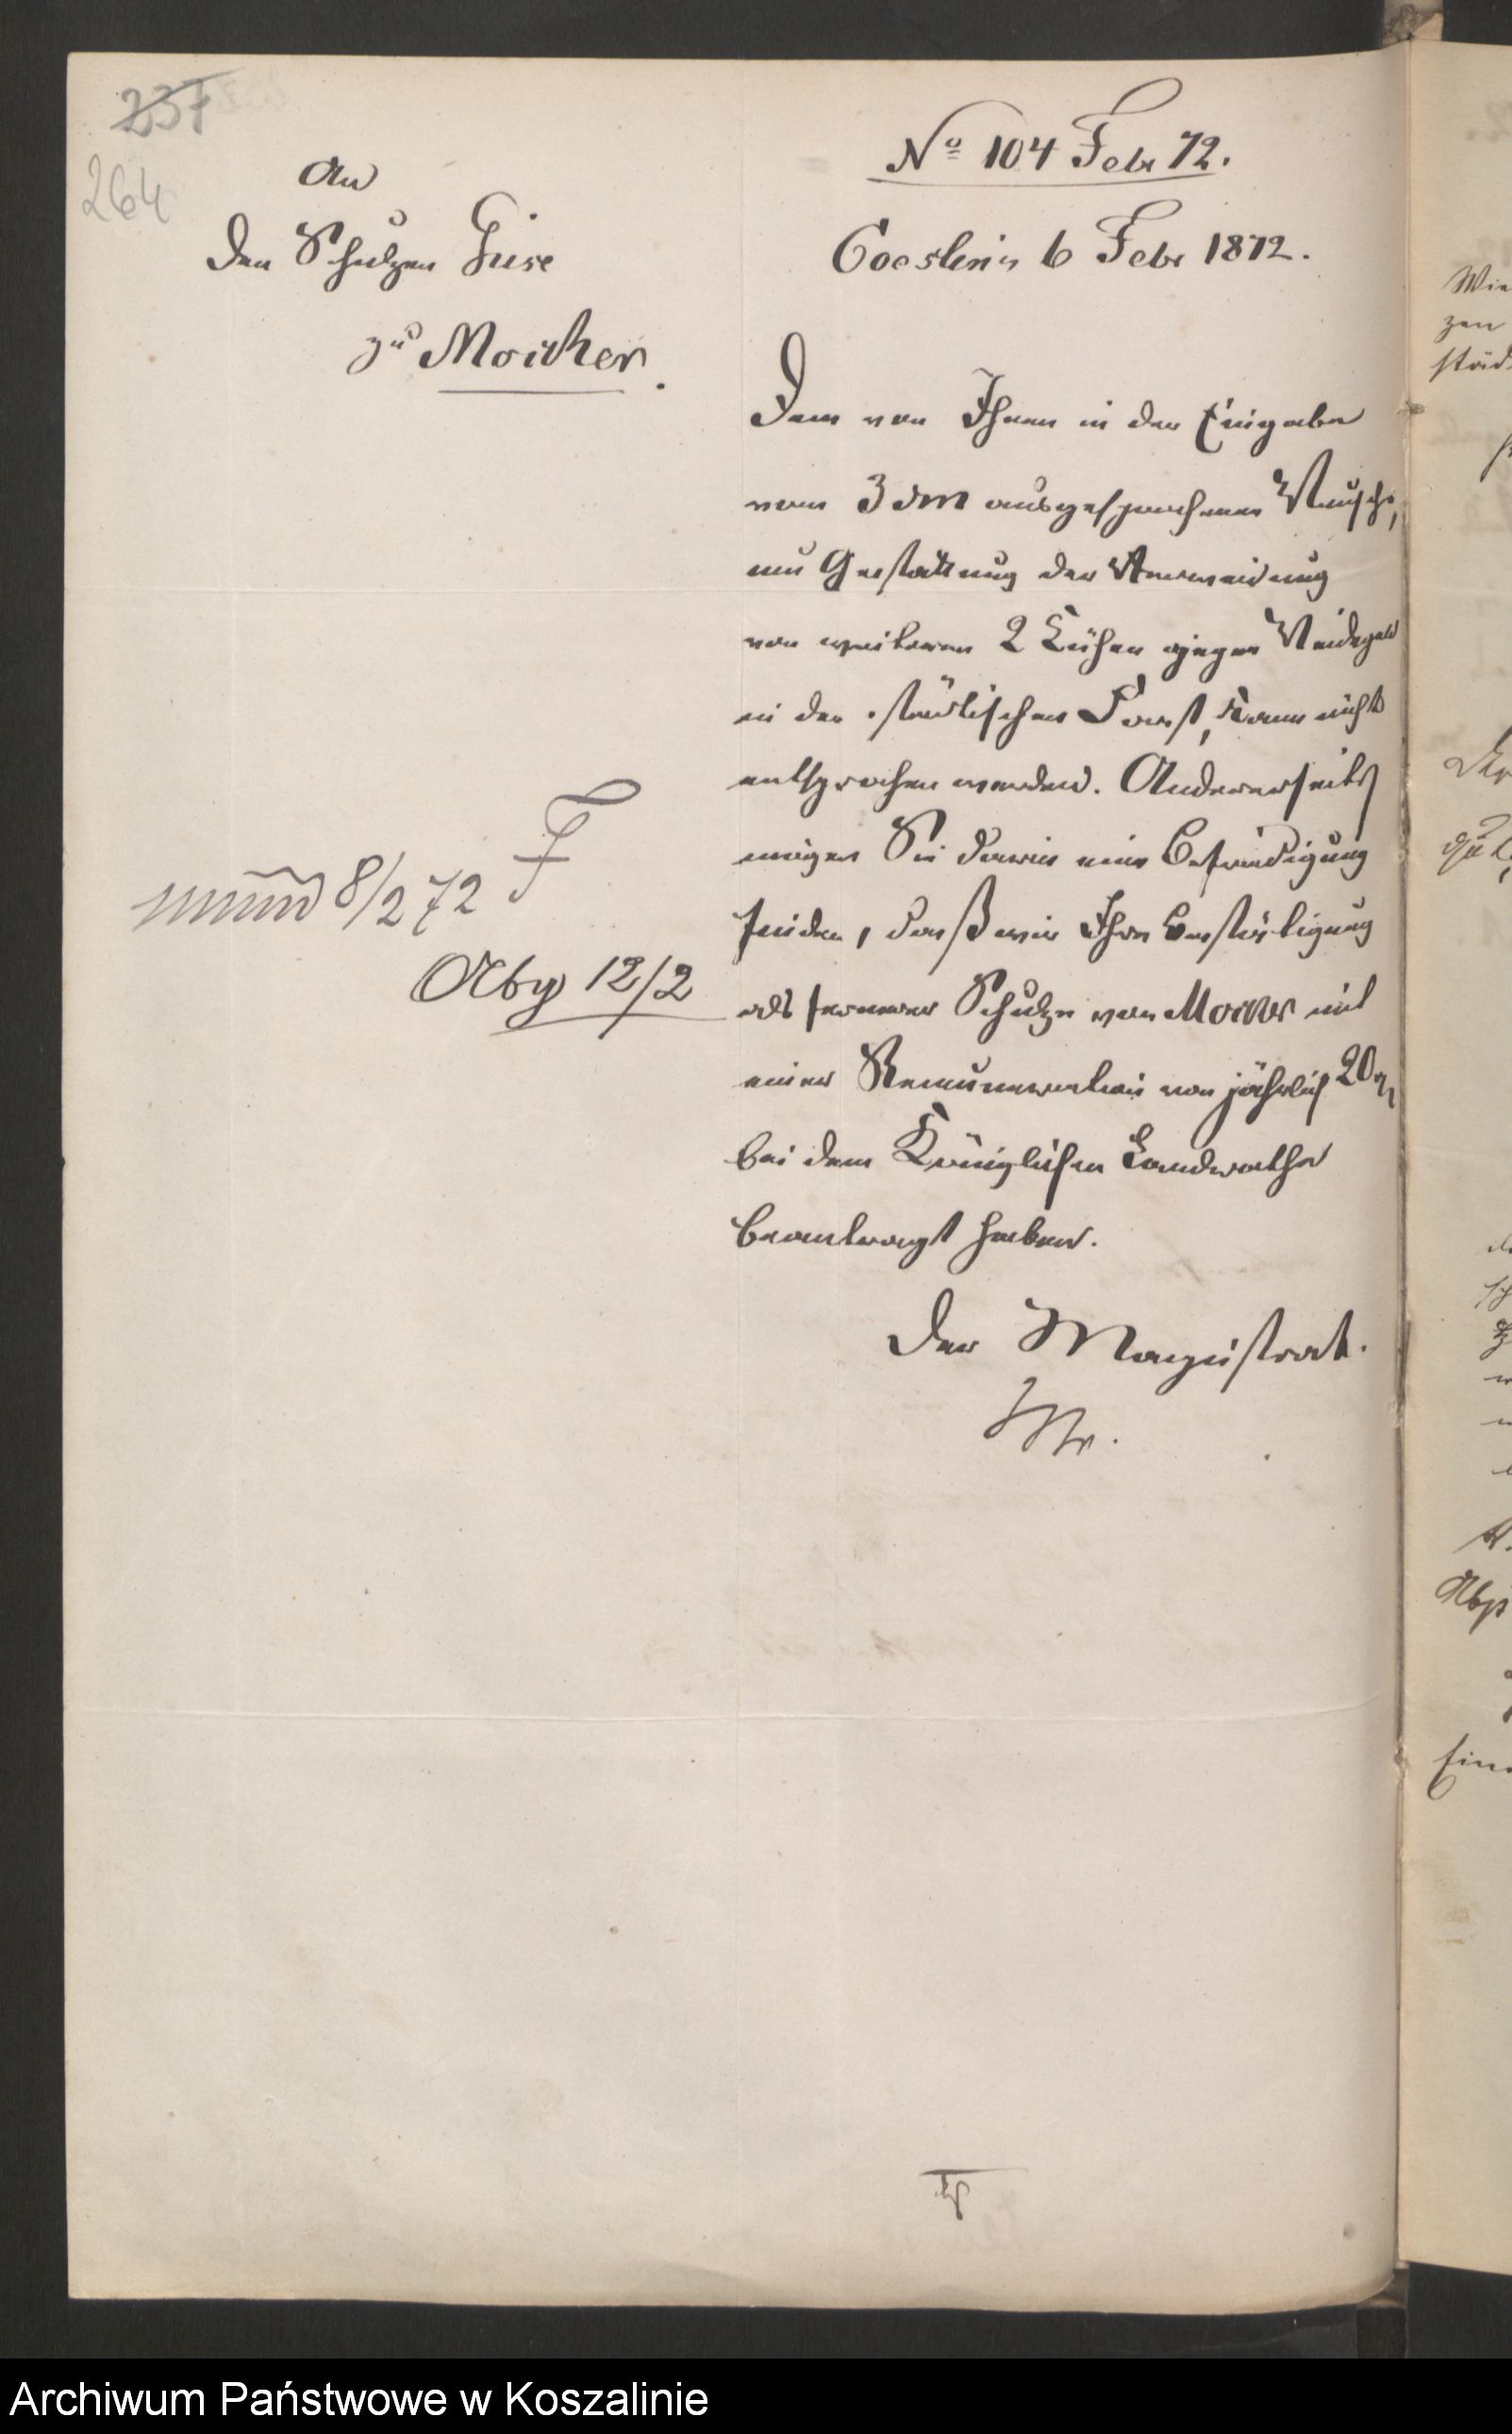 237
264
An
den Schulzen Guse
zu Mocker.
No 104 Febr 72.
Coeslin 6 Febr 1872.
Dem von Ihnen in der Eingabe
vom 3 d M ausgesprochenen Wunsche,
um Gestattung der
von weiteren 2 Kühen gegen Weidegeld
in der städtischen Forst, kann nicht
entsprochen werden. Andererseits
mögen Sie darin eine Befriedigung
finden, daß wir Ihre Bestätigung
als fernerer Schulze von Mocker mit
einer Remuneration von jährlich 20
bei dem Königlichen Landrathe
beantragt haben.
Der Magistrat.
8/2 72
Abg 12/2
Wie
zen
städ
Archiwum Państwowe w Koszalinie